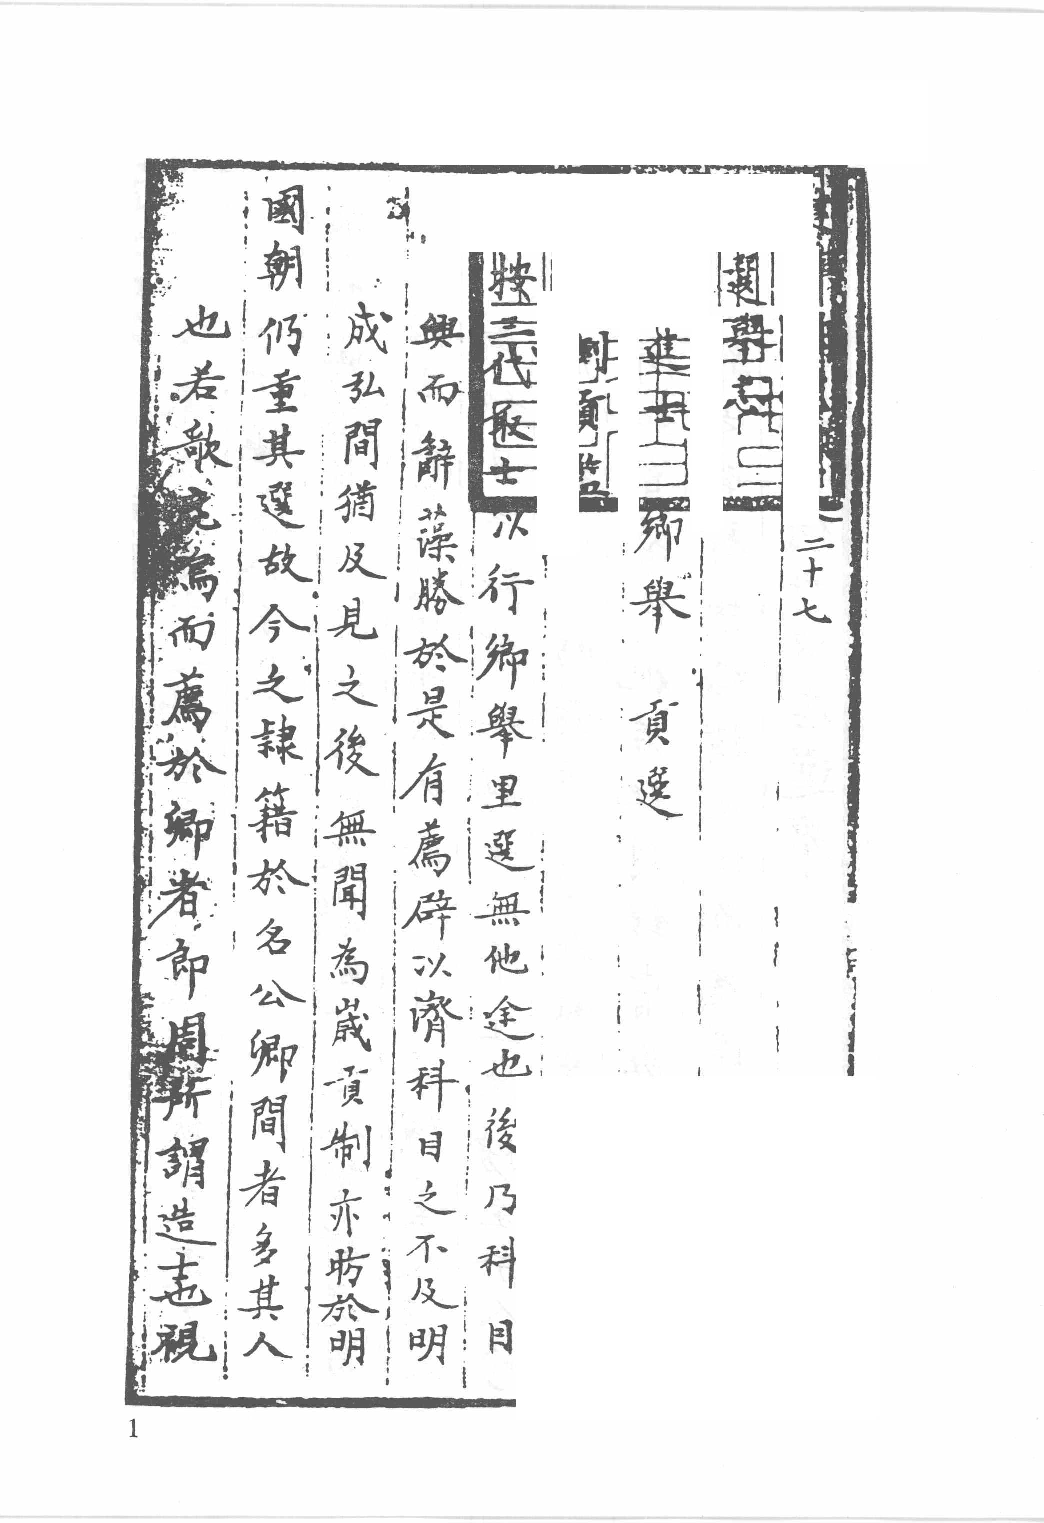 二十七
選舉志
進士 鄉舉 貢選
例貢
按三代取士以行鄉舉里選無他途也後乃科目
興而辭藻勝於是有薦辟以濟科目之不及明
成弘間猶及見之後無聞為歲貢制亦昉於明
國朝仍重其選故今之隷籍於名公卿間者多其人
也若歌鹿鳴而薦於鄉者即周所謂造士也視
1